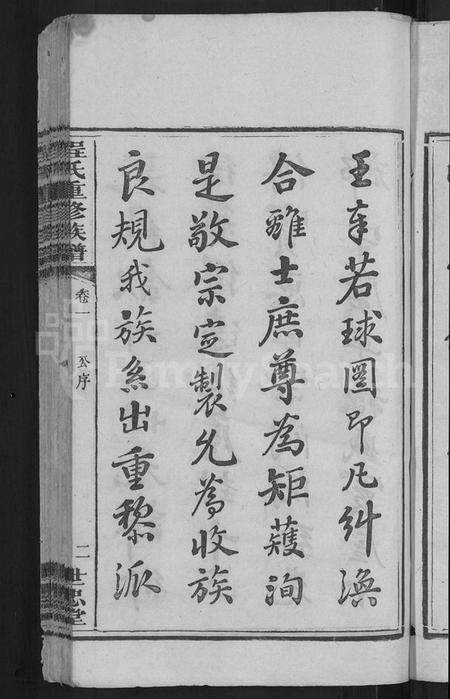 王奉若球圖即凡糾渙
合雖士庶尊為矩矱洵
是敬宗定製允為收族
良規我族系出重黎派
程氏重修族譜
卷一
序
二
世忠堂
FamilySearch